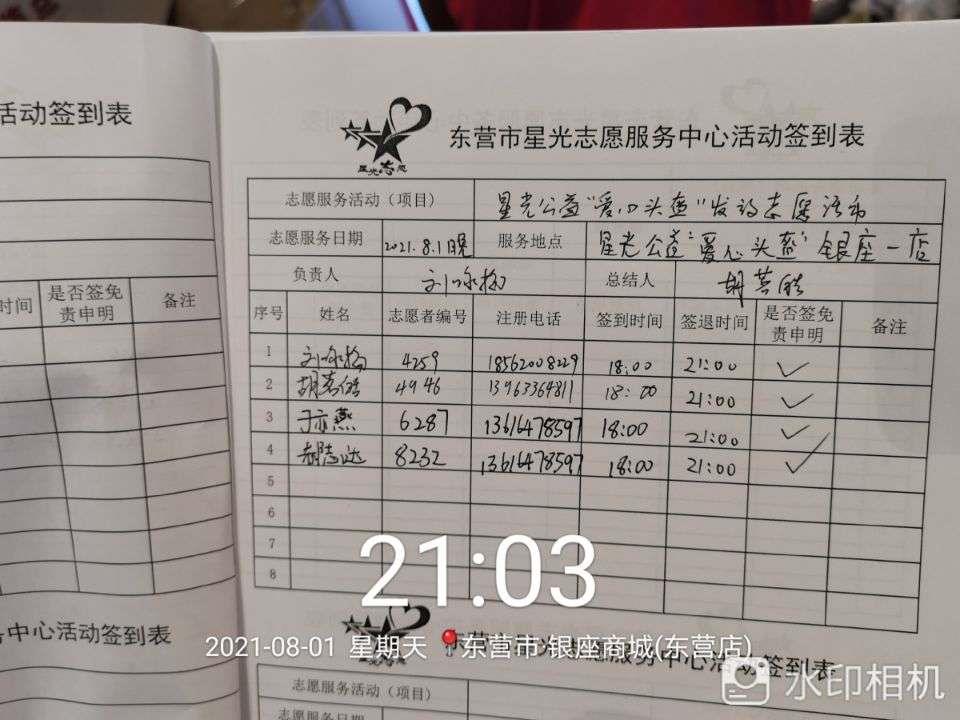 活动签到表
时间 是否签免责申明 备注
中心活动签到表
星光志愿
东营市星光志愿服务中心活动签到表
志愿服务活动（项目） 星光公益“爱心头盔”发放志愿活动
志愿服务日期 2021.8.1日晚 服务地点 星光公益“爱心头盔”银座一店
负责人 总结人
序号 姓名 志愿者编号 注册电话 签到时间 签退时间 是否签免责申明 备注
1 4259 18562008229 18:00 21:00 ✓
2 4946 13963364811 18:00 21:00 ✓
3 于亦燕 6287 13616478597 18:00 21:00 ✓
4 8232 13616478597 18:00 21:00 ✓
5
6
7
8
21:03
2021-08-01 星期天 东营市·银座商城(东营店)
星光志愿
东营市星光志愿服务中心活动签到表
水印相机
志愿服务活动（项目）
志愿服务日期